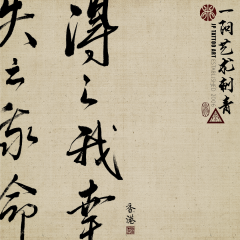 一阿艺术刺青
JP TATTOO ART
得之我幸
失之我命
香港